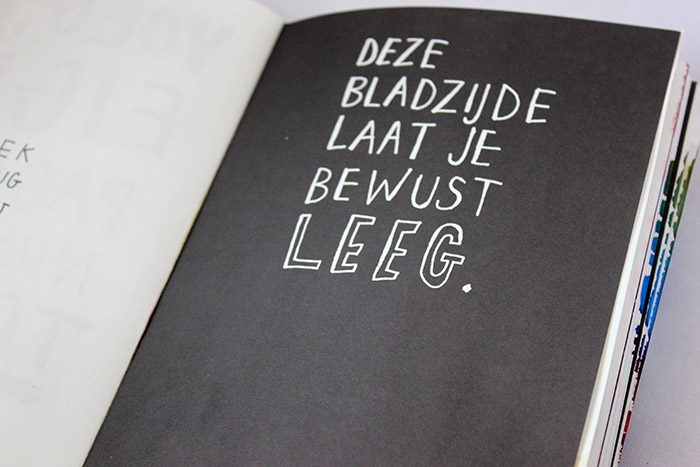 DEZE
BLADZIJDE
LAAT JE
BEWUST
LEEG.